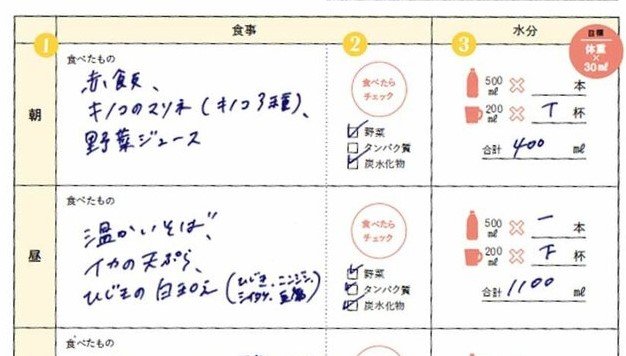 食事
水分
目標
体重
×
30ml
1
2
3
朝
食べたもの
赤飯、
キノコのマリネ(キノコ3種)、
野菜ジュース
食べたら
チェック
野菜
タンパク質
炭水化物
500
ml
本
200
ml
T 杯
合計 400 ml
昼
食べたもの
温かいそば、
イカの天ぷら、
ひじきの白和え(ひじき、ニンジン、
シイタケ、豆腐)
食べたら
チェック
野菜
タンパク質
炭水化物
500
ml
一 本
200
ml
下 杯
合計 1100 ml
食べたもの